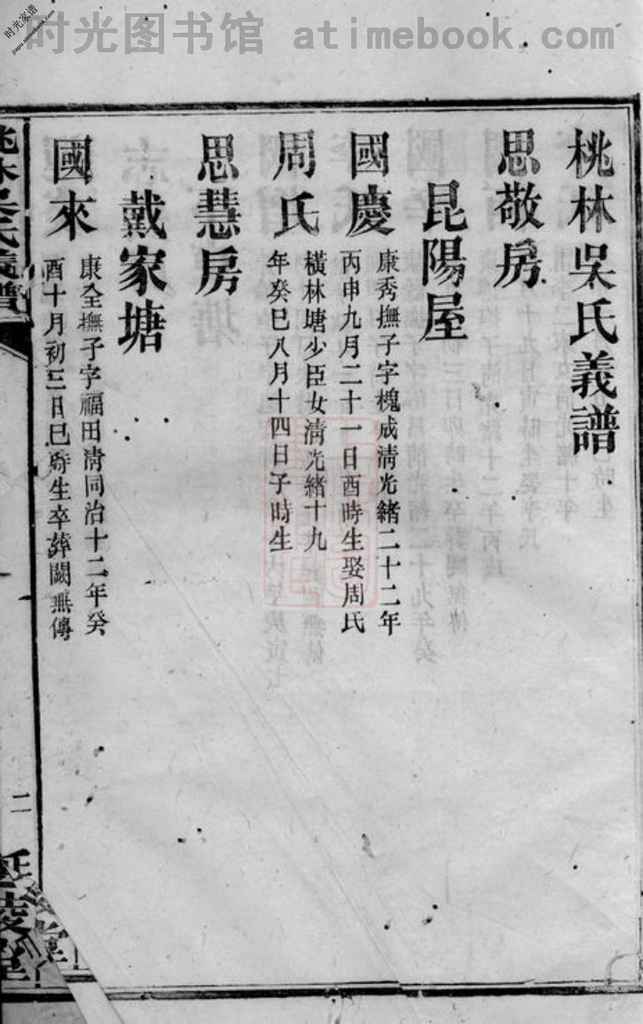 时光图书馆 atimebook.com
时光家谱
桃林吳氏義譜
思敬房
昆陽屋
國慶
康秀撫子字槐成清光緒二十二年
丙申九月二十一日酉時生娶周氏
周氏
橫林塘少臣女清光緒十九
年癸巳八月十四日子時生
思慧房
戴家塘
國來
康全撫子字福田清同治十二年癸
酉十月初三日巳時生卒葬闕無傳
桃林吳氏義譜
二
延陵堂